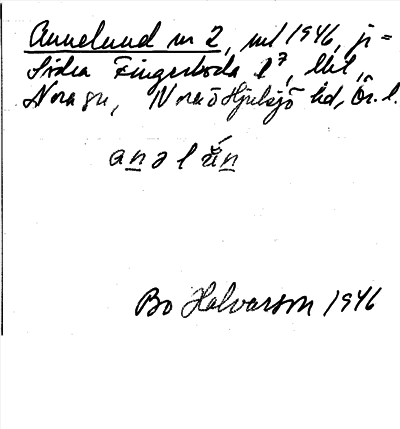 Annelund nr 2, ml 1946, ji =
Sidra Fingerboda 1⁷, lht,
Nora sn, Nora o Hjulsjö hd, Ör. l.
Bo Halvarson 1946